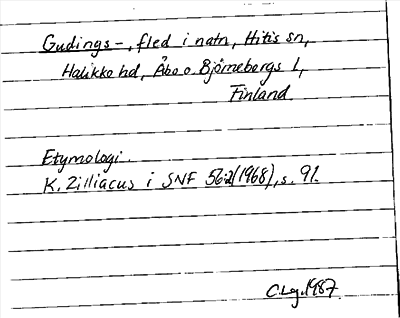 Gudings-, fled i natn, Hitis sn,
Halikko hd, Åbo o. Björneborgs l,
Finland
Etymologi.
K. Zilliacus i SNF 56:2(1968), s. 91.
C.Lg.1987